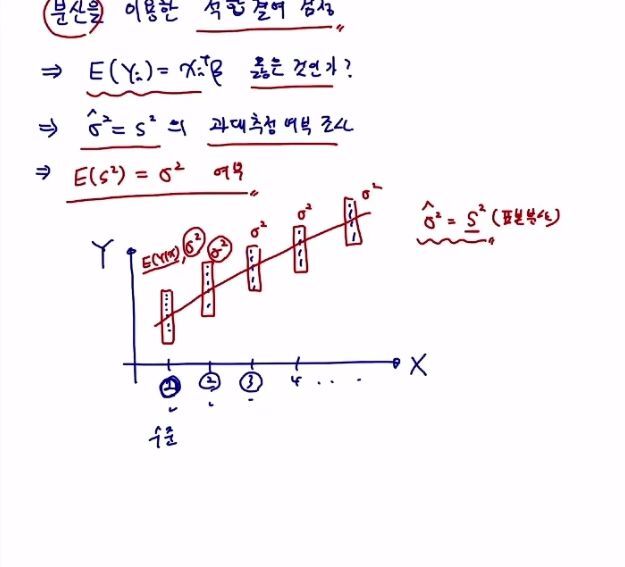 분산을 이용한 적합 결여 검정
⇒ E(Yᵢ) = xᵢᵀβ 옳은 것인가?
⇒ σ̂² = s² 의 과대추정 여부 조사
⇒ E(s²) = σ² 여부
σ̂² = s² (표본분산)
Y E(Y|x), σ² σ² σ² σ² σ²
X
① ② ③ 4 . . . .
수준